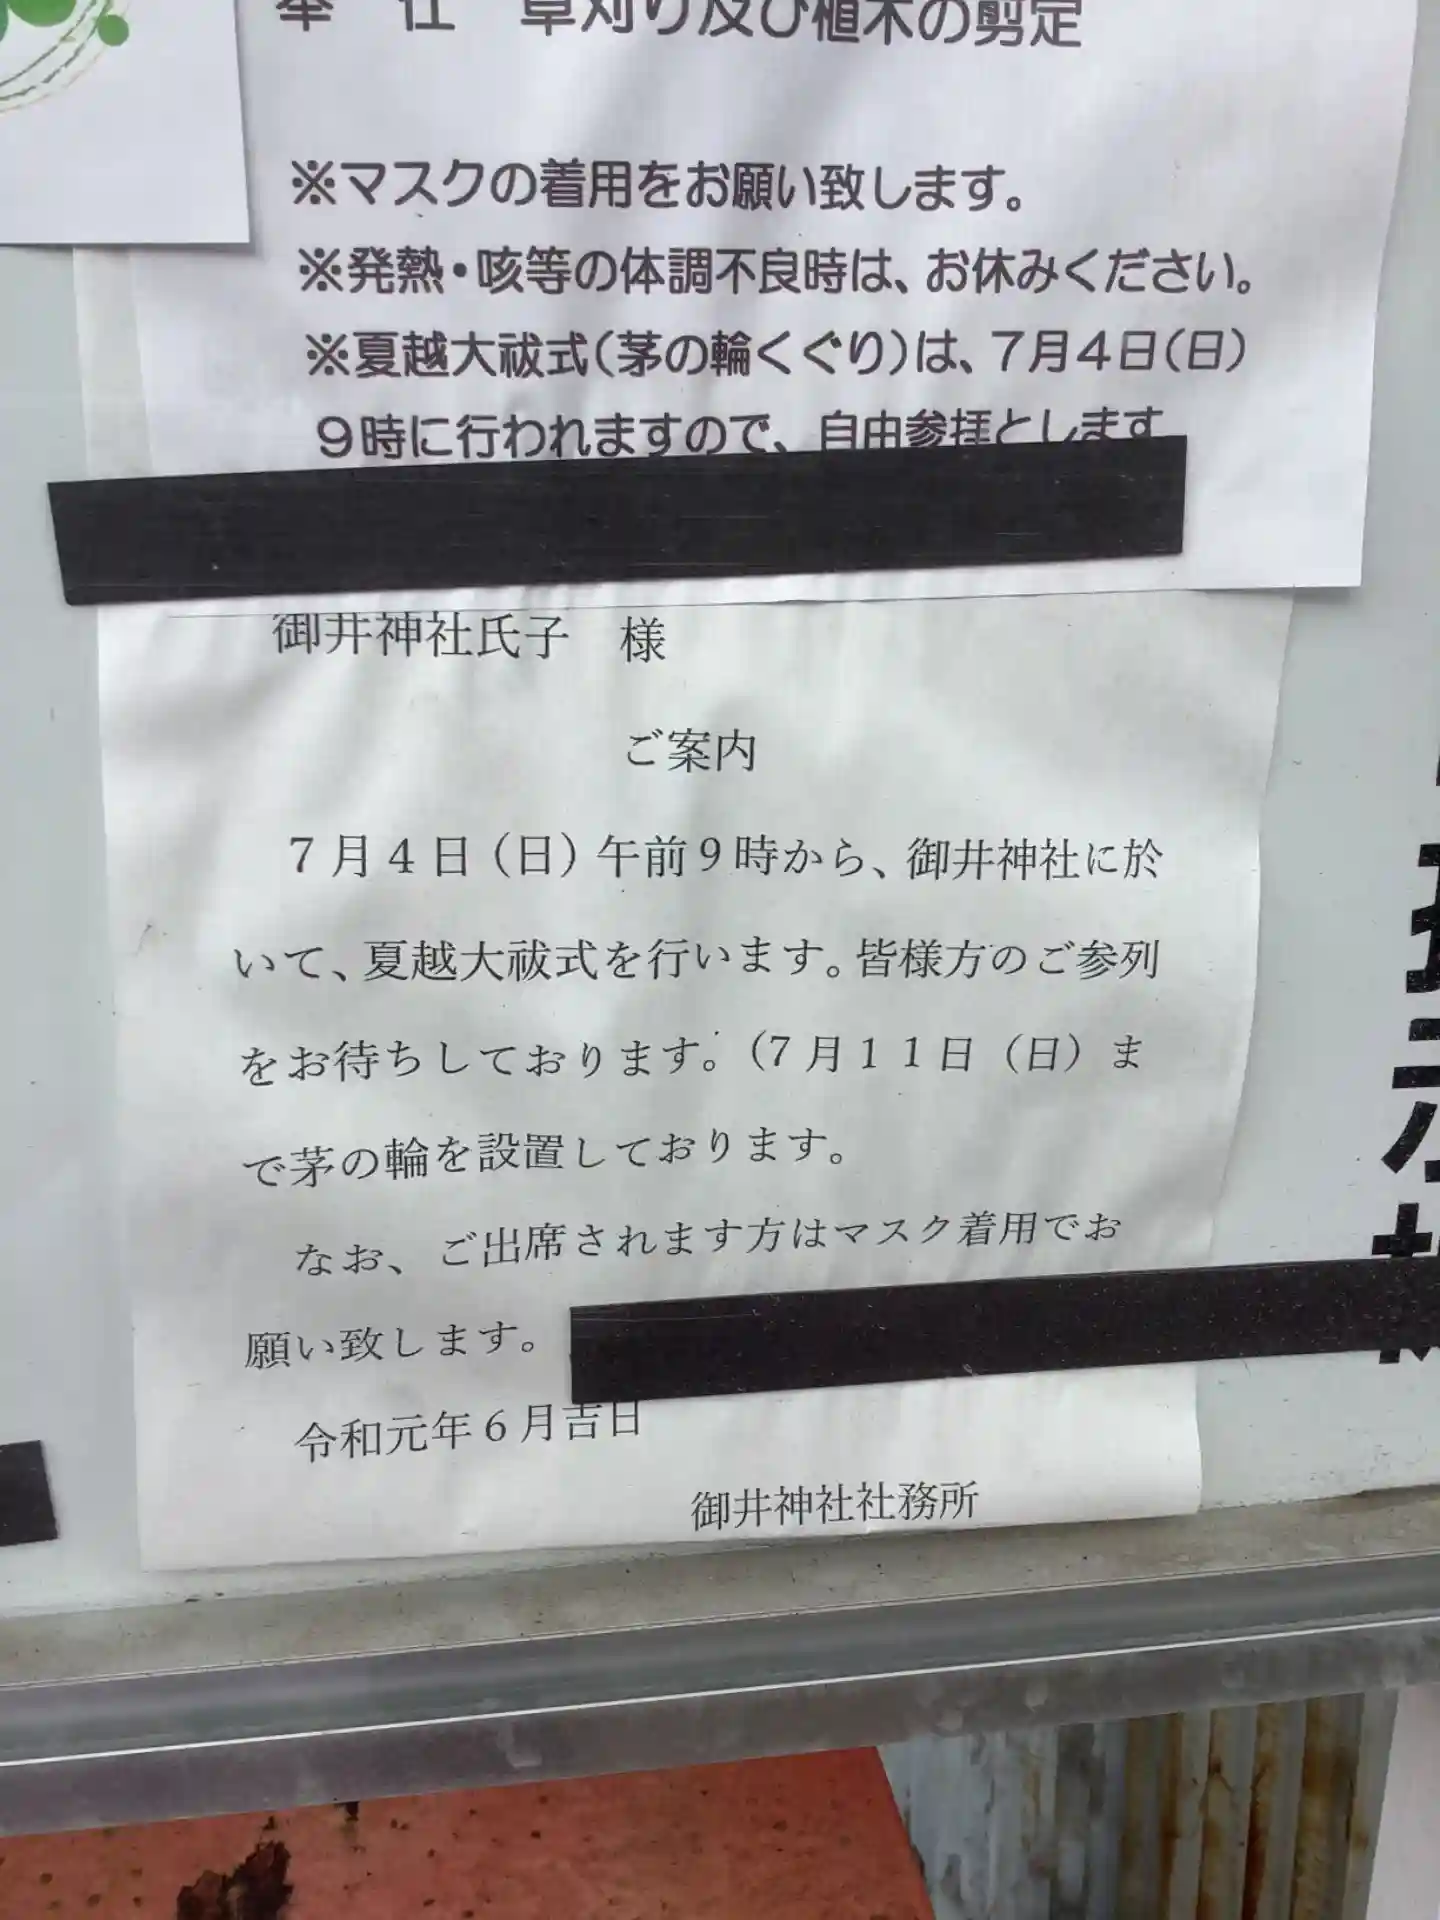 奉　仕　草刈り及び植木の剪定
※マスクの着用をお願い致します。
※発熱・咳等の体調不良時は、お休みください。
※夏越大祓式（茅の輪くぐり）は、７月４日（日）
９時に行われますので、自由参拝とします
御井神社氏子　様
ご案内
７月４日（日）午前９時から、御井神社に於
いて、夏越大祓式を行います。皆様方のご参列
をお待ちしております。（７月１１日（日）ま
で茅の輪を設置しております。
なお、ご出席されます方はマスク着用でお
願い致します。
令和元年６月吉日
御井神社社務所